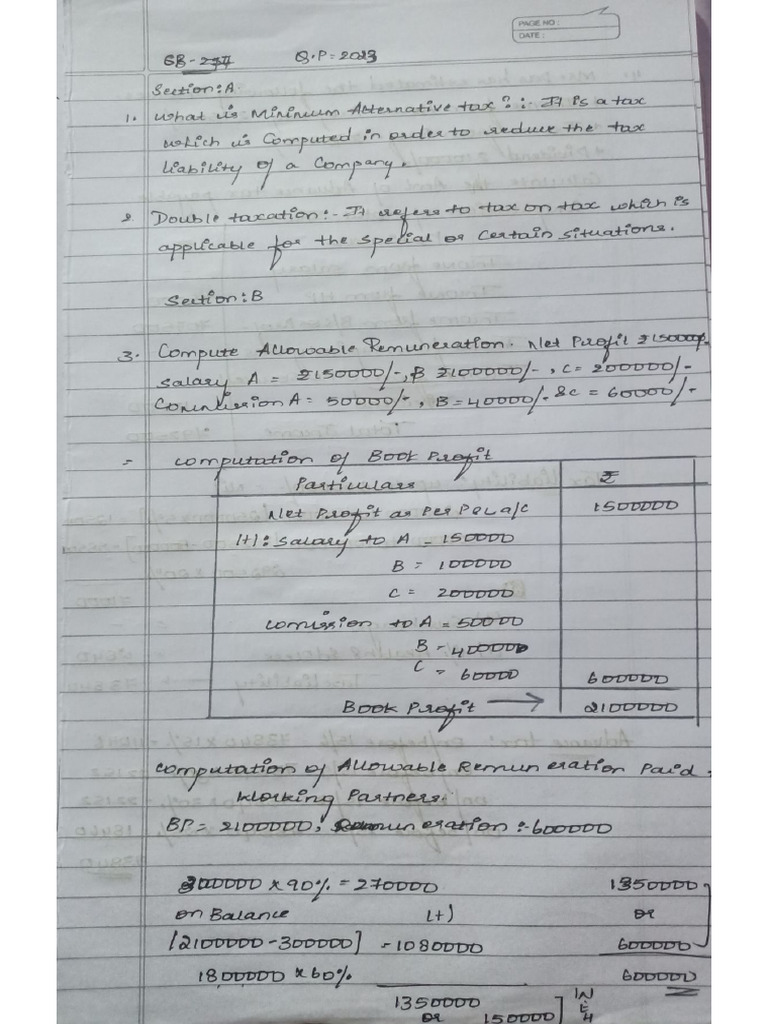 PAGE NO :
DATE :
GB - 277 Q.P = 2023
Section : A
1. What is Minimum Alternative tax? :- It is a tax
which is Computed in order to reduce the tax
liability of a Company.
2. Double taxation :- It refers to tax on tax which is
applicable for the Special or Certain Situations.
Section : B
3. Compute Allowable Remuneration. Net Profit ₹1500000/-
Salary A = ₹150000/-, B ₹100000/-, C = 200000/-
Commission A = 50000/-, B = 40000/- & C = 60000/-
= Computation of Book Profit
Particulars ₹
Net Profit as Per P&L a/c 1500000
(+) : Salary to A - 150000
B = 100000
C = 200000
Comission to A = 50000
B - 40000
C = 60000 600000
Book Profit → 2100000
Computation of Allowable Remuneration Paid
Working Partners :
BP = 2100000, Remuneration :- 600000
300000 x 90% = 270000 1350000
on Balance (+) or
[2100000 - 300000] = 1080000 600000
1800000 x 60% 600000
1350000
or 150000] W.E.H